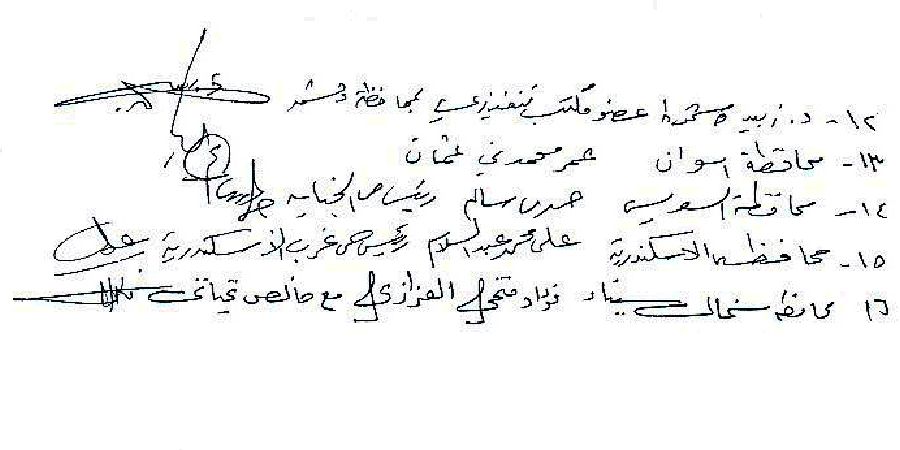 ١٢- د. زبير عضو مكتب تنفيذي بمحافظة دمشق
١٣- محافظة اسوان عمر محمدي عثمان
١٤- محافظة السويس سالم رئيس حي الجناين
١٥- محافظة الاسكندرية على محمد عبد السلام رئيس حى غرب الأسكندرية
١٦ محافظة شمال سيناء فؤاد فتحي الغزازي مع خالص تحياتى